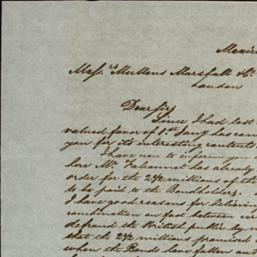 Mexico
Mess.rs Mullens Marshall & Co.
London
Dear Sirs
Since I had last
valued favor of 1st Jany has come
you for its interesting contents.
I have now to inform you
here Mr. has already
order for the 2½ millions of the
to be paid to the Bondholders.
I have good reasons for believing
combination on foot between
defraud the British public by
that the 2½ millions promised
when the Bonds have fallen